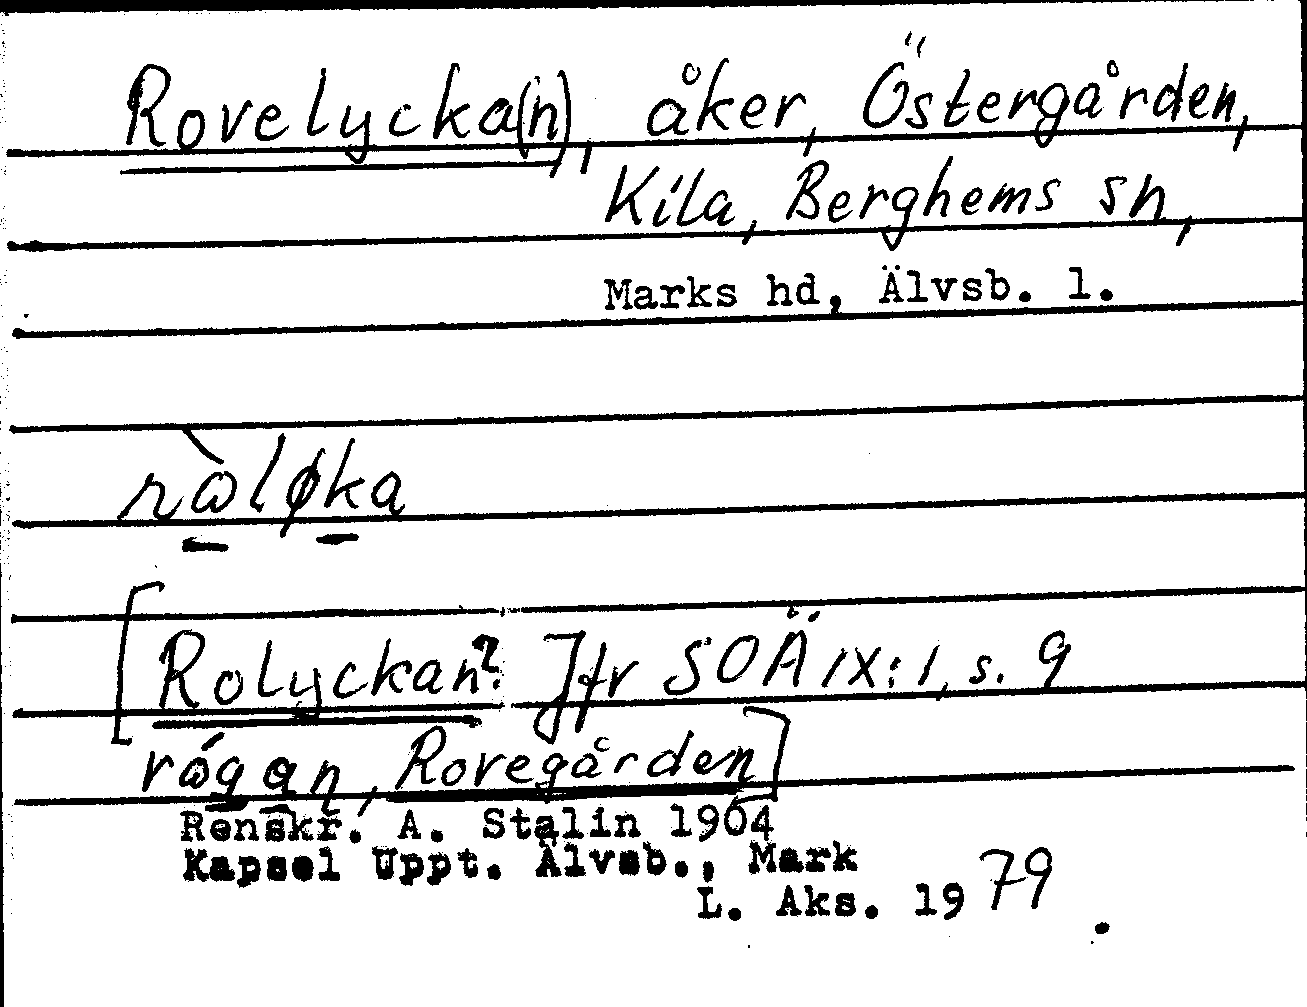 Rovelycka(n), åker, Östergården,
Kila, Berghems sn,
Marks hd, Älvsb. l.
ròløka
[Rolyckan? Jfr SOÄ IX:1, s. 9
rógan, Rovegården]
Renskr. A. Stalin 1964
Kapsel Uppt. Älvsb., Mark
L. Aks. 1979.